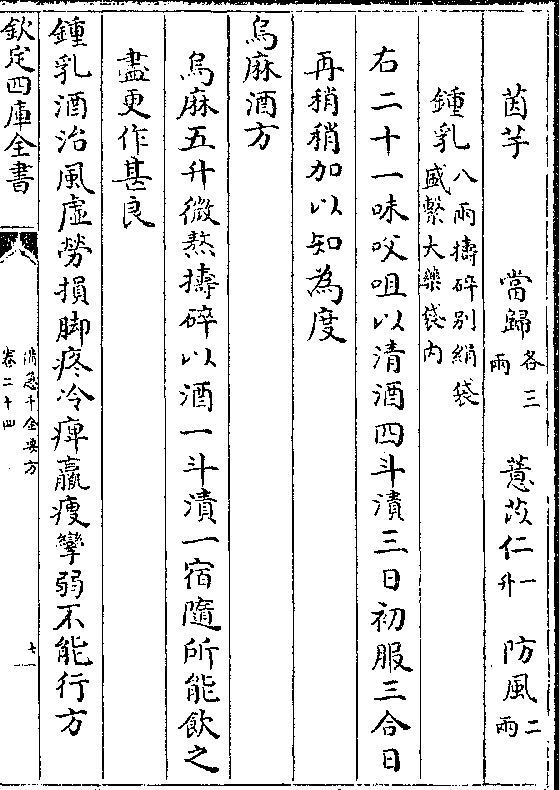 茵芋　當歸各三兩　薏苡仁一升　防風二兩
鍾乳八兩擣碎别絹袋盛繫大藥袋内
右二十一味㕮咀以清酒四斗漬三日初服三合日
再稍稍加以知為度
烏麻酒方
烏麻五升微熬擣碎以酒一斗漬一宿隨所能飲之
盡更作甚良
鍾乳酒治風虛勞損脚疼冷痺羸瘦攣弱不能行方
欽定四庫全書
備急千金要方
卷二十四
七